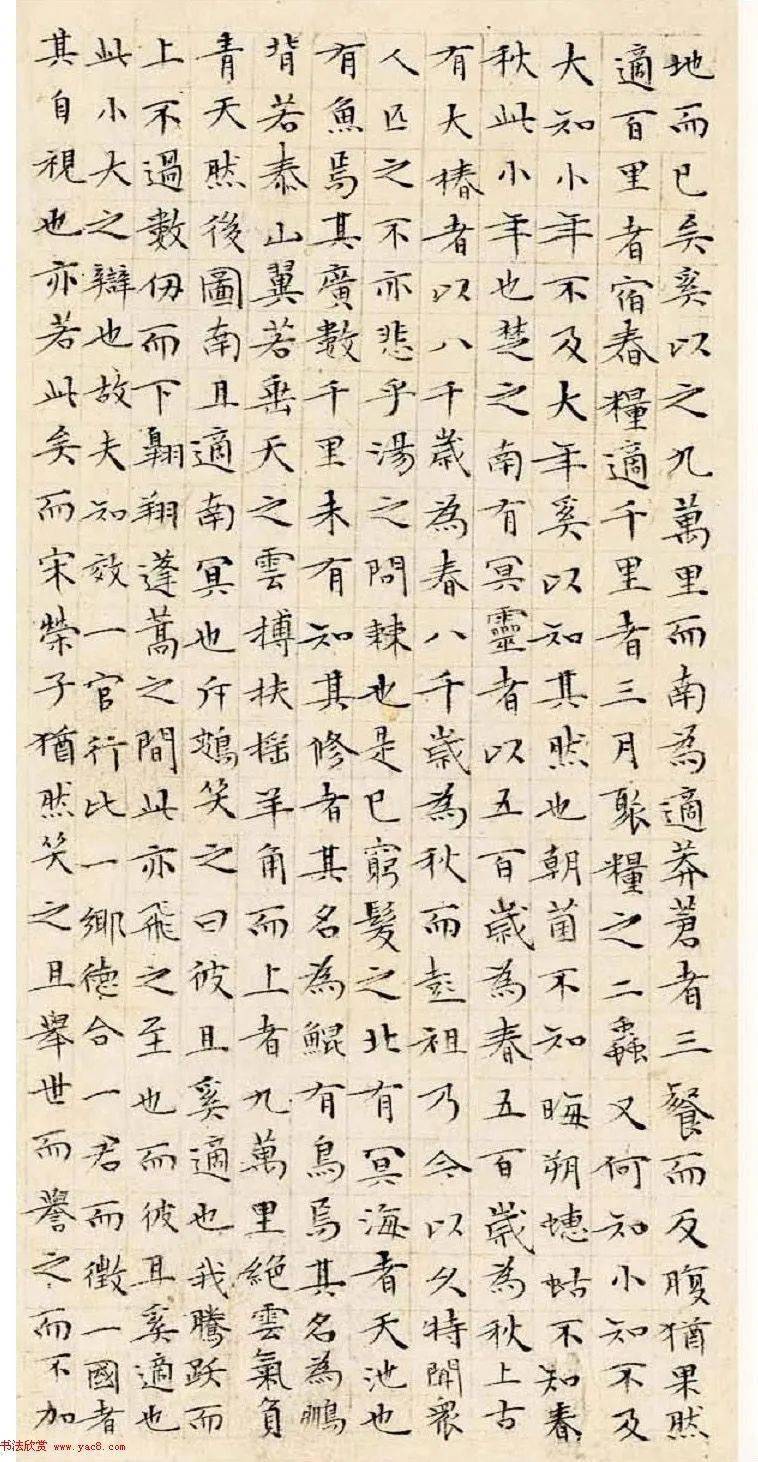 地而已矣奚以之九萬里而南為適莽蒼者三餐而反腹猶果然
適百里者宿舂糧適千里者三月聚糧之二蟲又何知小知不及
大知小年不及大年奚以知其然也朝菌不知晦朔蟪蛄不知春
秋此小年也楚之南有冥靈者以五百歲為春五百歲為秋上古
有大椿者以八千歲為春八千歲為秋而彭祖乃今以久特聞眾
人匹之不亦悲乎湯之問棘也是已窮髮之北有冥海者天池也
有魚焉其廣數千里未有知其修者其名為鯤有鳥焉其名為鵬
背若泰山翼若垂天之雲摶扶摇羊角而上者九萬里絕雲氣負
青天然後圖南且適南冥也斥鴳笑之曰彼且奚適也我騰跃而
上不過數仞而下翱翔蓬蒿之間此亦飛之至也而彼且奚適也
此小大之辯也故夫知效一官行比一鄉德合一君而徵一國者
其自視也亦若此矣而宋榮子猶然笑之且舉世而譽之而不加
书法欣赏 www.yac8.com